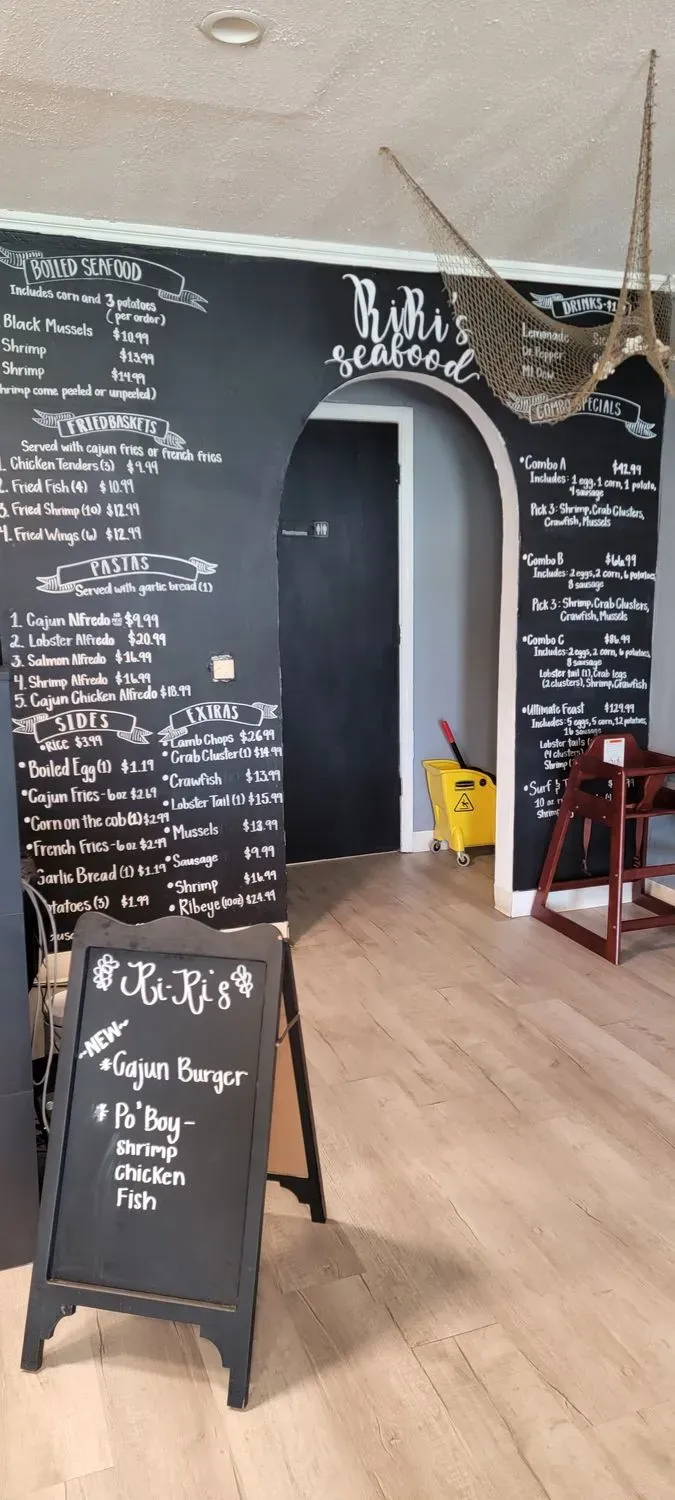 BOILED SEAFOOD
Includes corn and 3 potatoes
(per order)
Black Mussels $10.99
Shrimp $13.99
Shrimp $14.99
hrimp come peeled or unpeeled)
FRIED BASKETS
Served with cajun fries or french fries
1. Chicken Tenders (3) $9.99
2. Fried Fish (4) $10.99
3. Fried Shrimp (10) $12.99
4. Fried Wings (6) $12.99
PASTAS
Served with garlic bread (1)
1. Cajun Alfredo $9.99
2. Lobster Alfredo $20.99
3. Salmon Alfredo $16.99
4. Shrimp Alfredo $16.99
5. Cajun Chicken Alfredo $18.99
SIDES
•Rice $3.99
•Boiled Egg (1) $1.19
•Cajun Fries - 6oz $2.69
•Corn on the cob (1) $2.99
•French Fries - 6oz $2.49
Garlic Bread (1) $1.19
tatoes (3) $1.99
EXTRAS
•Lamb Chops $26.99
•Crab Cluster (1) $14.99
•Crawfish $13.99
•Lobster Tail (1) $15.99
•Mussels $13.99
•Sausage $9.99
•Shrimp $16.99
•Ribeye (10oz) $24.99
RiRi's
seafood
Restrooms
DRINKS-$1
Lemonade
Dr. Pepper
Mt Dew
COMBO SPECIALS
•Combo A $42.99
Includes: 1 egg, 1 corn, 1 potato,
1 sausage
Pick 3: Shrimp, Crab Clusters,
Crawfish, Mussels
•Combo B $66.99
Includes: 2 eggs, 2 corn, 6 potatoes,
8 sausage
Pick 3: Shrimp, Crab Clusters,
Crawfish, Mussels
•Combo C $86.99
Includes: 2 eggs, 2 corn, 6 potatoes,
8 sausage
Lobster tail (1), Crab legs
(2 clusters), Shrimp, Crawfish
•Ultimate Feast $129.99
Includes: 5 eggs, 5 corn, 12 potatoes,
16 sausage
Lobster tails
(4 clusters)
Shrimp
•Surf &
10 oz
shrimp
Ri-Ri's
~NEW~
*Cajun Burger
* Po'Boy-
Shrimp
Chicken
Fish